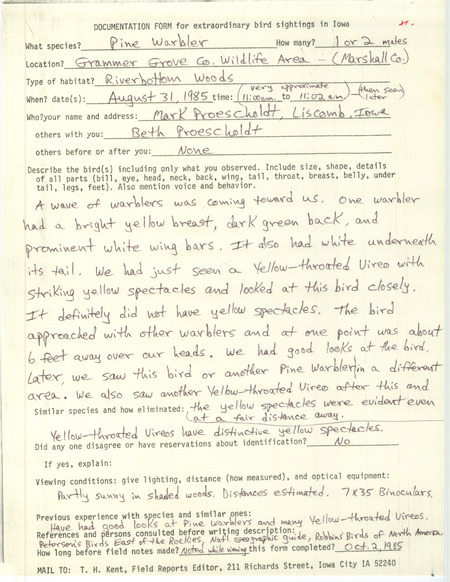 DOCUMENTATION FORM for extraordinary bird sightings in Iowa
What species? Pine Warbler How many? 1 or 2 males
Location? Grammer Grove Co. Wildlife Area - (Marshall Co.)
Type of habitat? Riverbottom Woods
When? date(s): August 31, 1985 time: (very approximate 11:00am to 11:02 am) (then seen later)
Who?your name and address: Mark Proescholdt, Liscomb, Iowa
others with you: Beth Proescholdt
others before or after you: None
Describe the bird(s) including only what you observed. Include size, shape, details
of all parts (bill, eye, head, neck, back, wing, tail, throat, breast, belly, under
tail, legs, feet). Also mention voice and behavior.
A wave of warblers was coming toward us. One warbler
had a bright yellow breast, dark green back, and
prominent white wing bars. It also had white underneath
its tail. We had just seen a Yellow-throated Vireo with
striking yellow spectacles and looked at this bird closely.
It definitely did not have yellow spectacles. The bird
approached with other warblers and at one point was about
6 feet away over our heads. We had good looks at the bird.
Later, we saw this bird or another Pine Warbler in a different
area. We also saw another Yellow-throated Vireo after this and
Similar species and how eliminated: the yellow spectacles were evident even
at a fair distance away.
Yellow-throated Vireos have distinctive yellow spectacles.
Did any one disagree or have reservations about identification? No
If yes, explain:
Viewing conditions: give lighting, distance (how measured), and optical equipment:
Partly sunny in shaded woods. Distances estimated. 7x35 Binoculars.
Previous experience with species and similar ones:
Have had good looks at Pine Warblers and many Yellow-throated Vireos.
References and persons consulted before writing description:
Peterson's Birds East of the Rockies, Natl. Geographic guide, Robbins' Birds of North America
How long before field notes made? Noted while viewing this form completed? Oct. 2, 1985
MAIL TO: T. H. Kent, Field Reports Editor, 211 Richards Street, Iowa City IA 52240